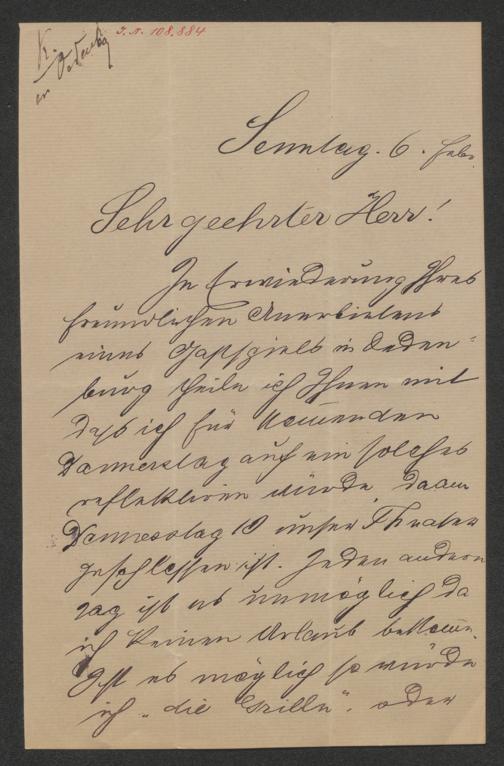 I. N. 108.884
K.
Sonntag. 6. Febr.
Sehr geehrter Herr!
In Erwiederung Ihres
freundlichen Anerbietens
eines Gastspiels in Oeden-
burg theile ich Ihnen mit
daß ich für kom̅enden
Donnerstag auf ein solches
reflektiren würde, da am
Donnerstag 10 unser Theater
geschlossen ist. Jeden andern
Tag ist es unmöglich da
ich keinen Urlaub bekom̅e.
Ist es möglich so würde
ich „die Grille“. oder